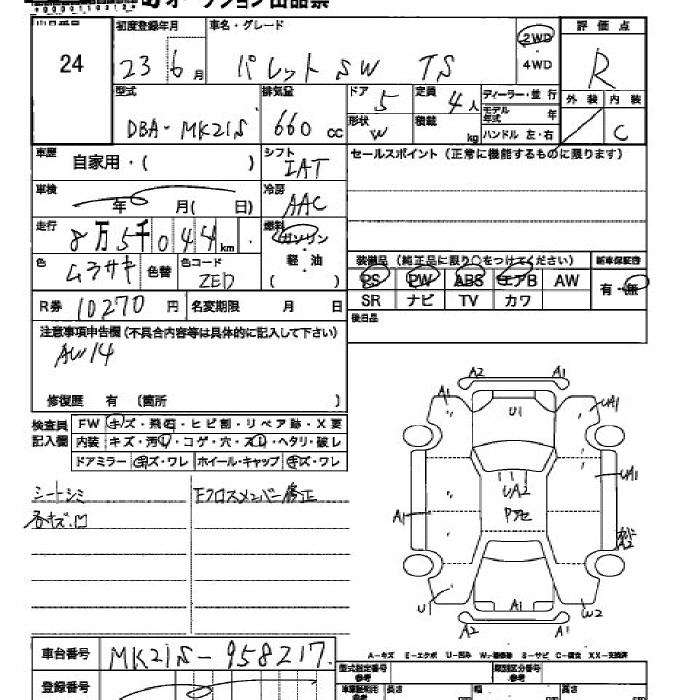 出品番号 初度登録年月 車名・グレード 評価点
24 23 6月 パレット SW TS 2WD 4WD R
型式 排気量 ドア 5 定員 4人 ディーラー・並行 外装 内装
DBA-MK21S 660cc 形状 W 積載 kg モデル年式 年 ハンドル 左・右 C
車歴 自家用・( ) シフト IAT セールスポイント(正常に機能するものに限ります)
車検 年 月( 日) 冷房 AAC
走行 8万5千044km 燃料 ガソリン
色 ムラサキ 色替 色コード ZED 軽・油 ( ) 装備品(純正品に限り○をつけてください) 新車保証書
PS PW ABS エアB AW 有・無
SR ナビ TV カワ
R券 10270円 名変期限 月 日 後日品
注意事項申告欄(不具合内容等は具体的に記入して下さい)
AW14
修復歴 有(箇所 )
検査員記入欄 FW キズ・飛石・ヒビ割・リペア跡・X要
内装 キズ・汚レ・コゲ・穴・スレ・ヘタリ・破レ
ドアミラー キズ・ワレ ホイール・キャップ キズ・ワレ
シートシミ Fクロスメンバー修正
各キズ.凹
A2 A1
A1 U1 UA1
UA2 UA1
A1 Pアセ
A2
U1 A1 W2
A2 A1
A-キズ E-エクボ U-凹み W-補修跡 S-サビ C-腐食 XX-交換済
車台番号 MK21S-958217
登録番号 型式指定番号 類別区分番号
長さ cm 幅 cm